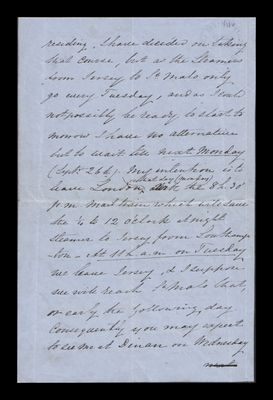 residing. I have decided on taking
that course, but as the Steamers
from Jersey to St. Malo only
go every Tuesday, and as I could
not possibly be ready to start to
morrow I have no alternative
but to wait till next Monday
(Septr. 26th). My intention is to
that day (Monday)
leave London, the 8h. 30'
p.m. Mail train which will save
the ¼ to 12 o'clock at night
Steamer to Jersey from Southamp
ton - At 11 h a.m. on Tuesday
we leave Jersey, & I suppose
we will reach St. Malo that,
or early the following, day
Consequently you may expect
to see me at Dinan on Wednesday